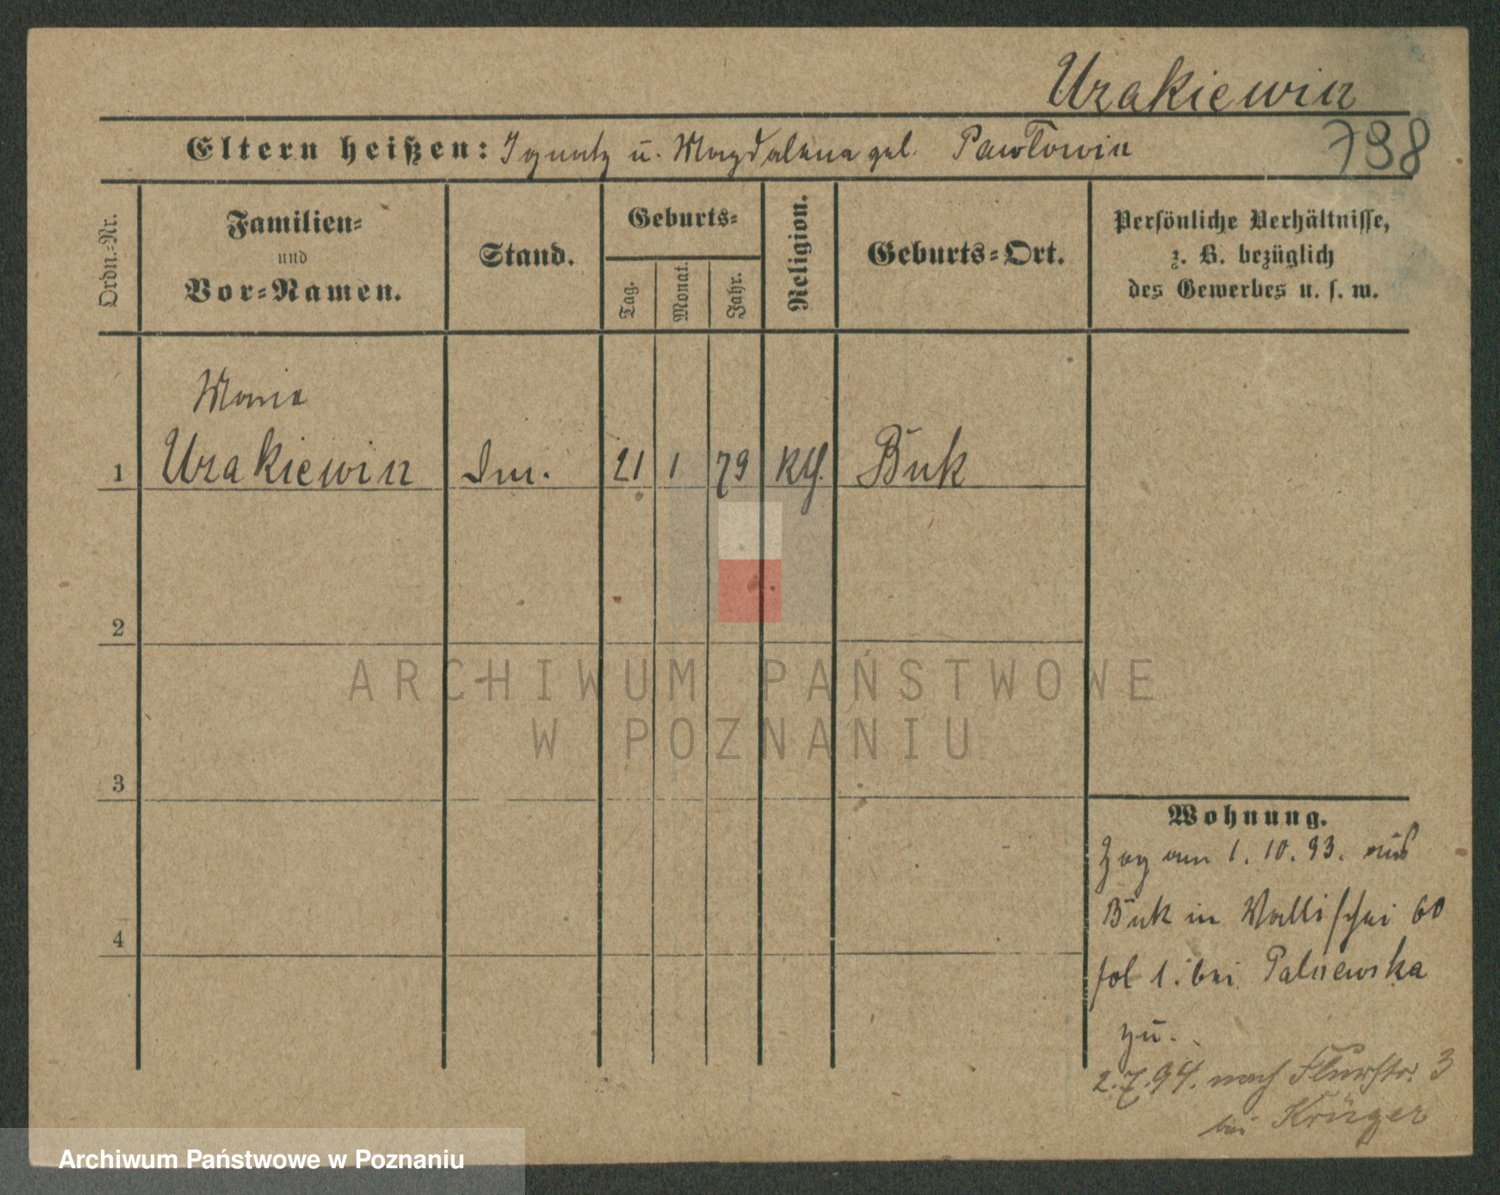 Urakiewicz
Eltern heißen: Ignatz u. Magdalena geb. Pawłowicz
798
Ordn.-Nr.
Familien-
und
Vor-Namen.
Stand.
Geburts-
Tag.
Monat.
Jahr.
Religion.
Geburts-Ort.
Persönliche Verhältnisse,
z. B. bezüglich
des Gewerbes u. s. w.
Maria
1 Urakiewicz 21 1 79 Kth. Buk
2
3
4
ARCHIWUM PAŃSTWOWE
W POZNANIU
Wohnung.
Zog am 1. 10. 93. aus
Buk in Wallischei 60
bei
zu.
2.7.94. nach Flurstr. 3
bei Krüger
Archiwum Państwowe w Poznaniu